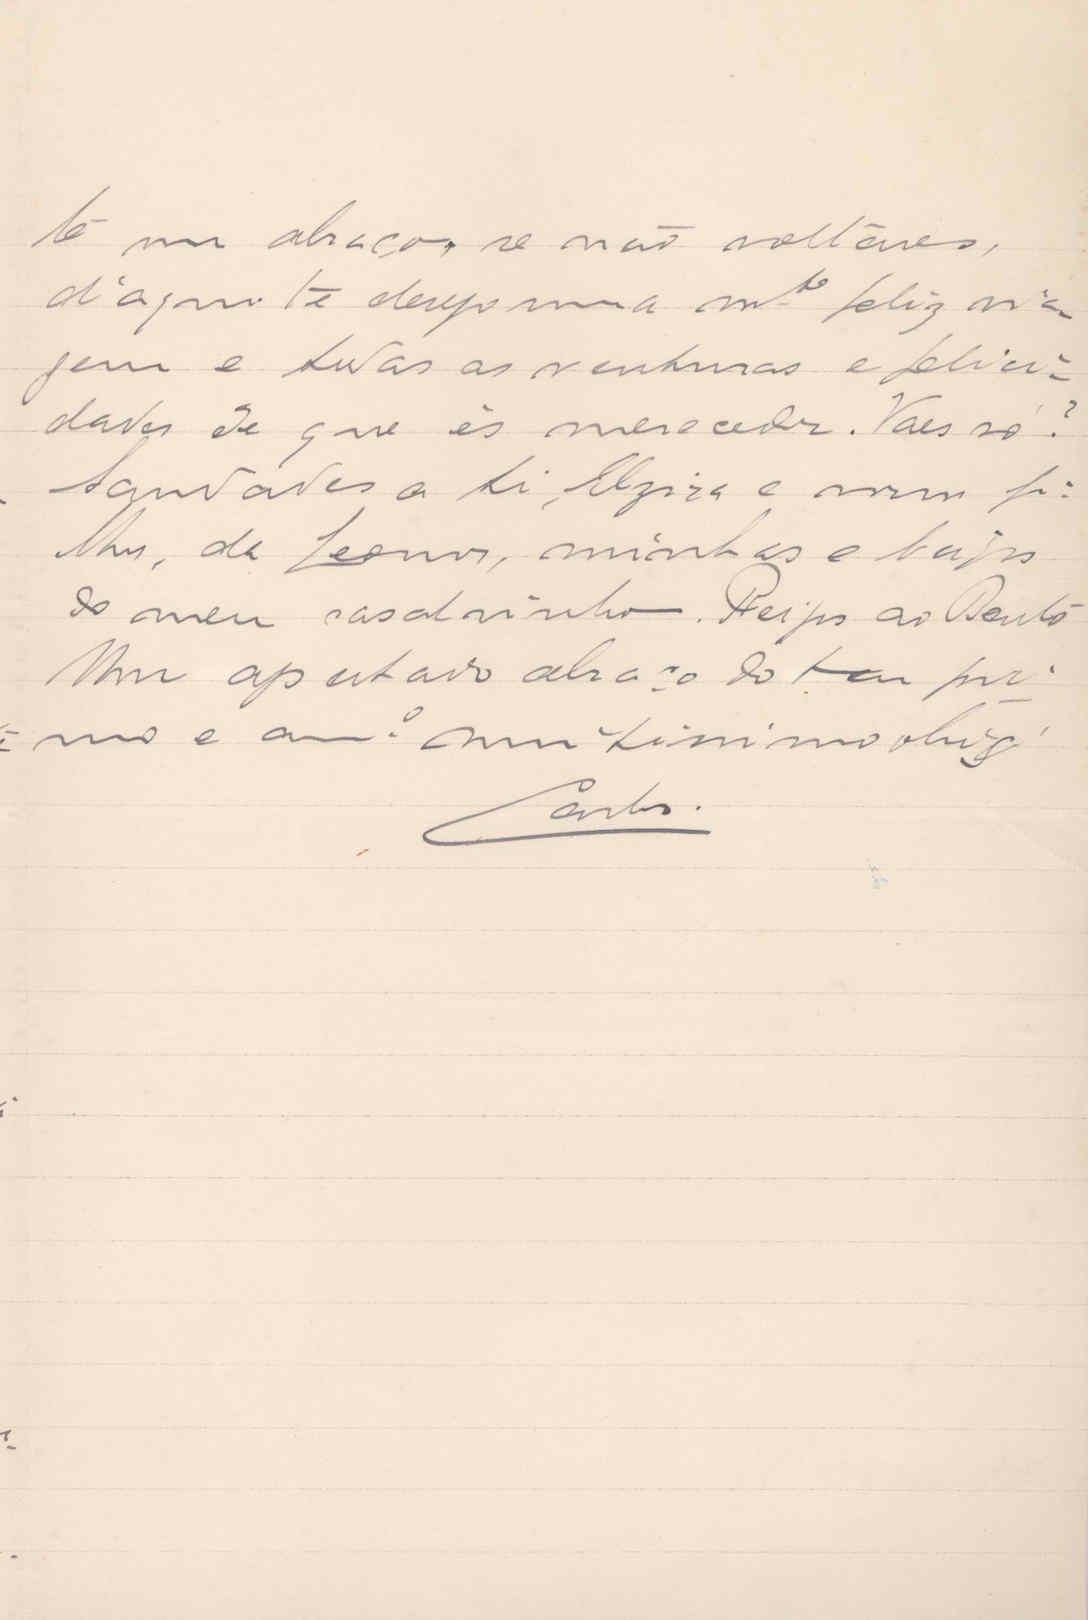 te um abraço, se não voltares,
d'aqui te desejo uma m.to feliz via-
gem e todas as venturas e felici-
dades de que és merecedor. Vaes só?
Saudades a ti, Elzira e fi-
lhos, da Leonor, minhas e beijos
do meu casalzinho. Beijos ao Bento
Um apertado abraço do teu pri-
mo e am.o muitissimo obrig
Carlos.